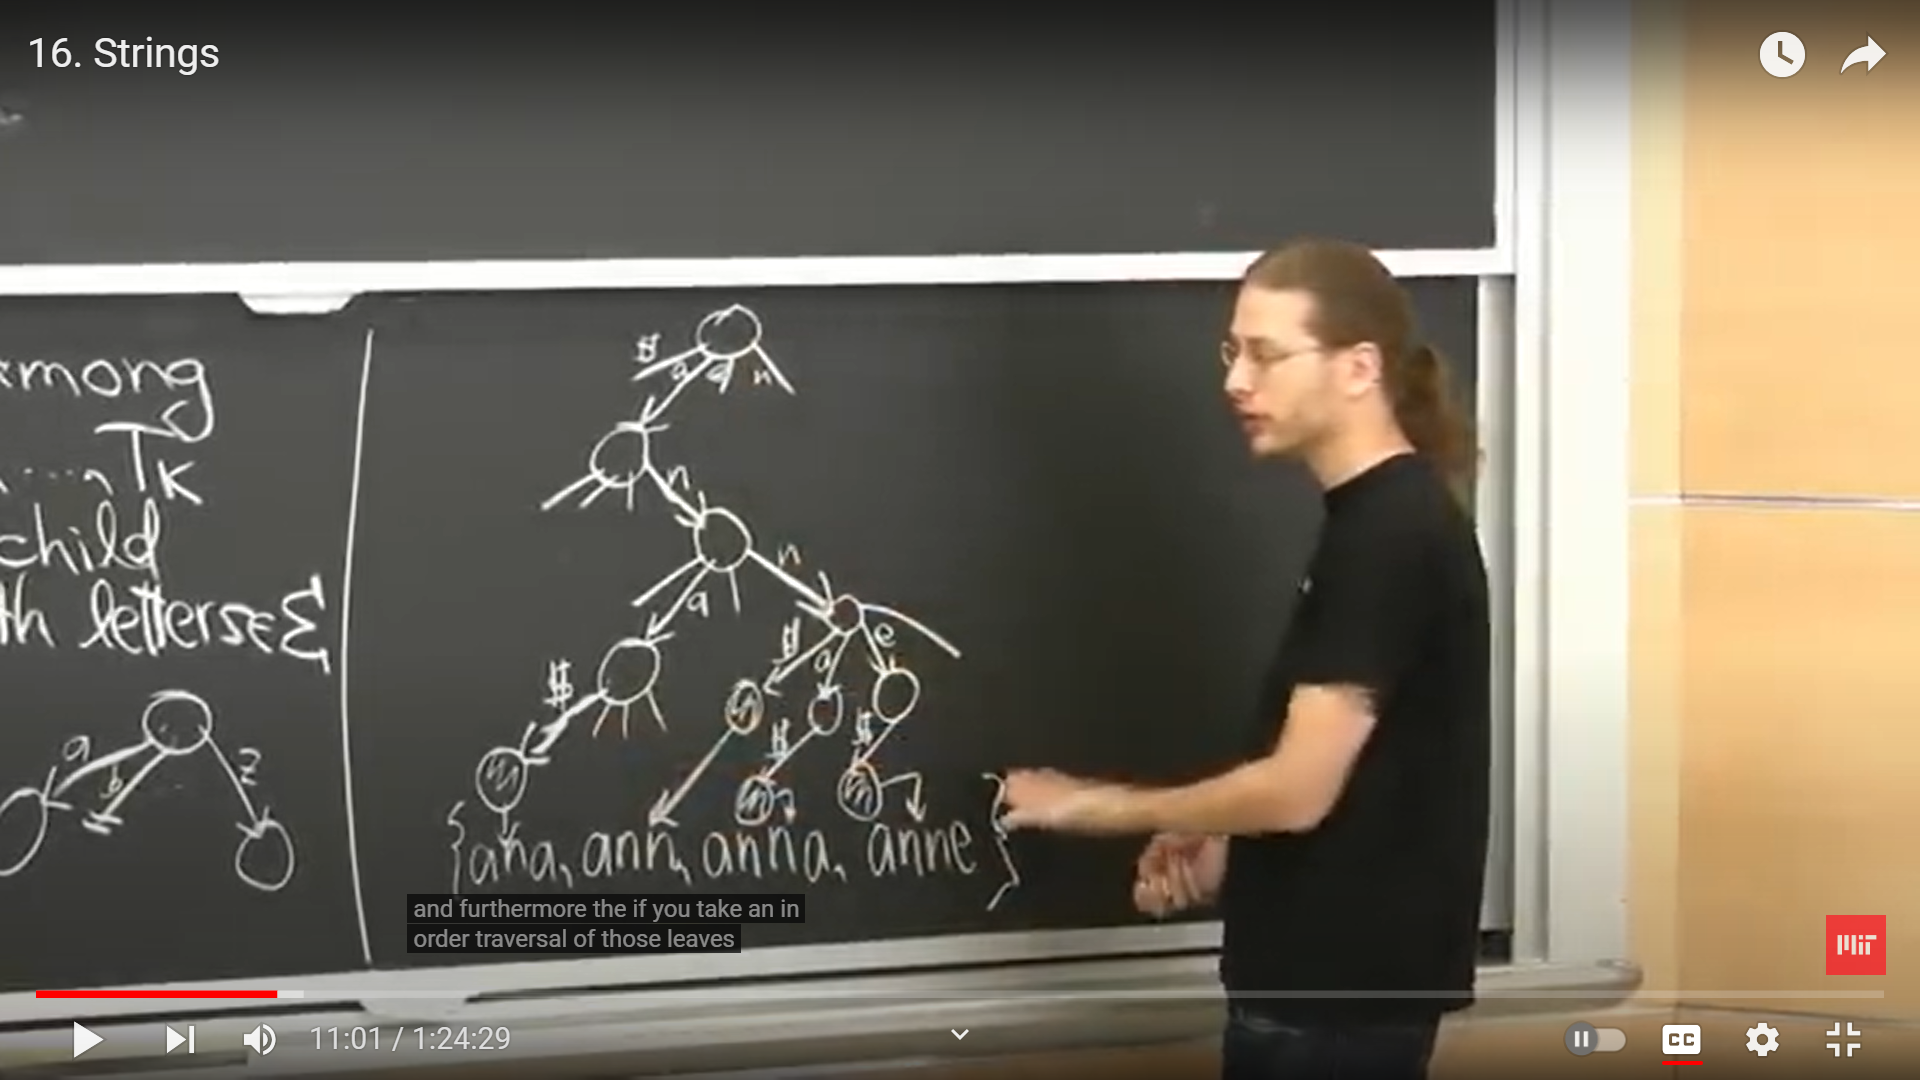 16. Strings
among
....., TK
child
th letters ∈ Σ
a
b
z
$
a
e
n
n
n
a
$
a
e
$
$
$
{ana, ann, anna, anne}
and furthermore the if you take an in
order traversal of those leaves
MIT
11:01 / 1:24:29
CC